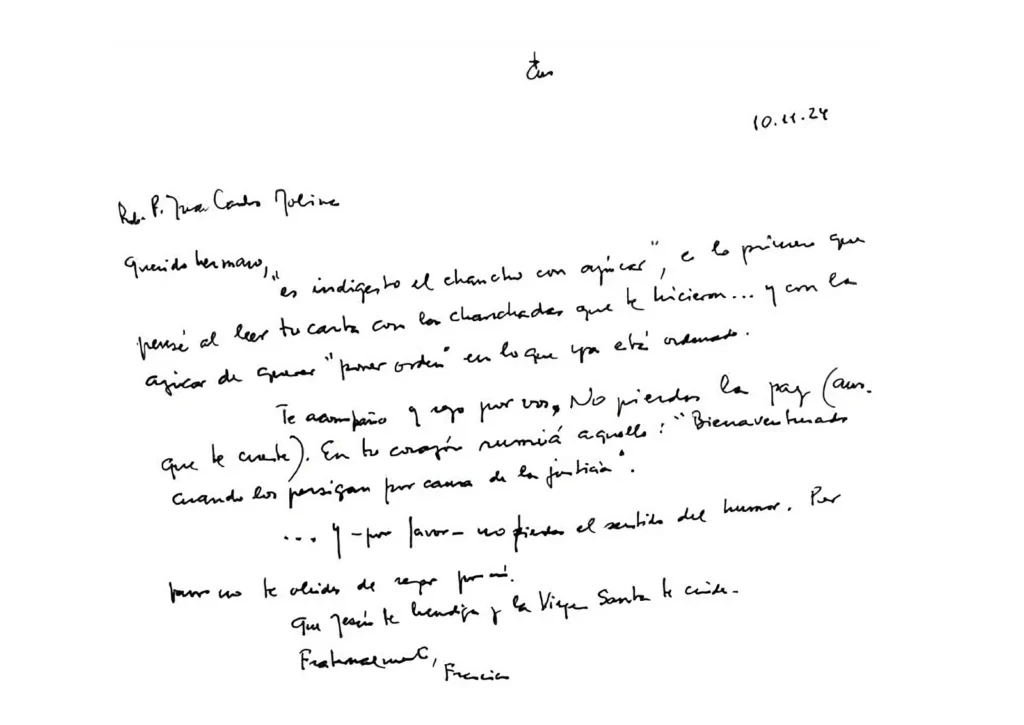 10.11.24
Rdo. P. Juan Carlos Molina
Querido hermano,
"es indigesto el chancho con azúcar", e lo primero que
pensé al leer tu carta con las chanchadas que te hicieron... y con la
azúcar de querer "poner orden" en lo que ya está ordenado.
Te acompaño y rezo por vos. No pierdas la paz (aun-
que te cueste). En tu corazón rumiá aquello: "Bienaventurados
cuando los persigan por causa de la justicia".
... Y -por favor- no pierdas el sentido del humor. Por
favor no te olvides de rezar por mí.
Que Jesús te bendiga y la Virgen Santa te cuide.
Fraternalmente,
Francisco